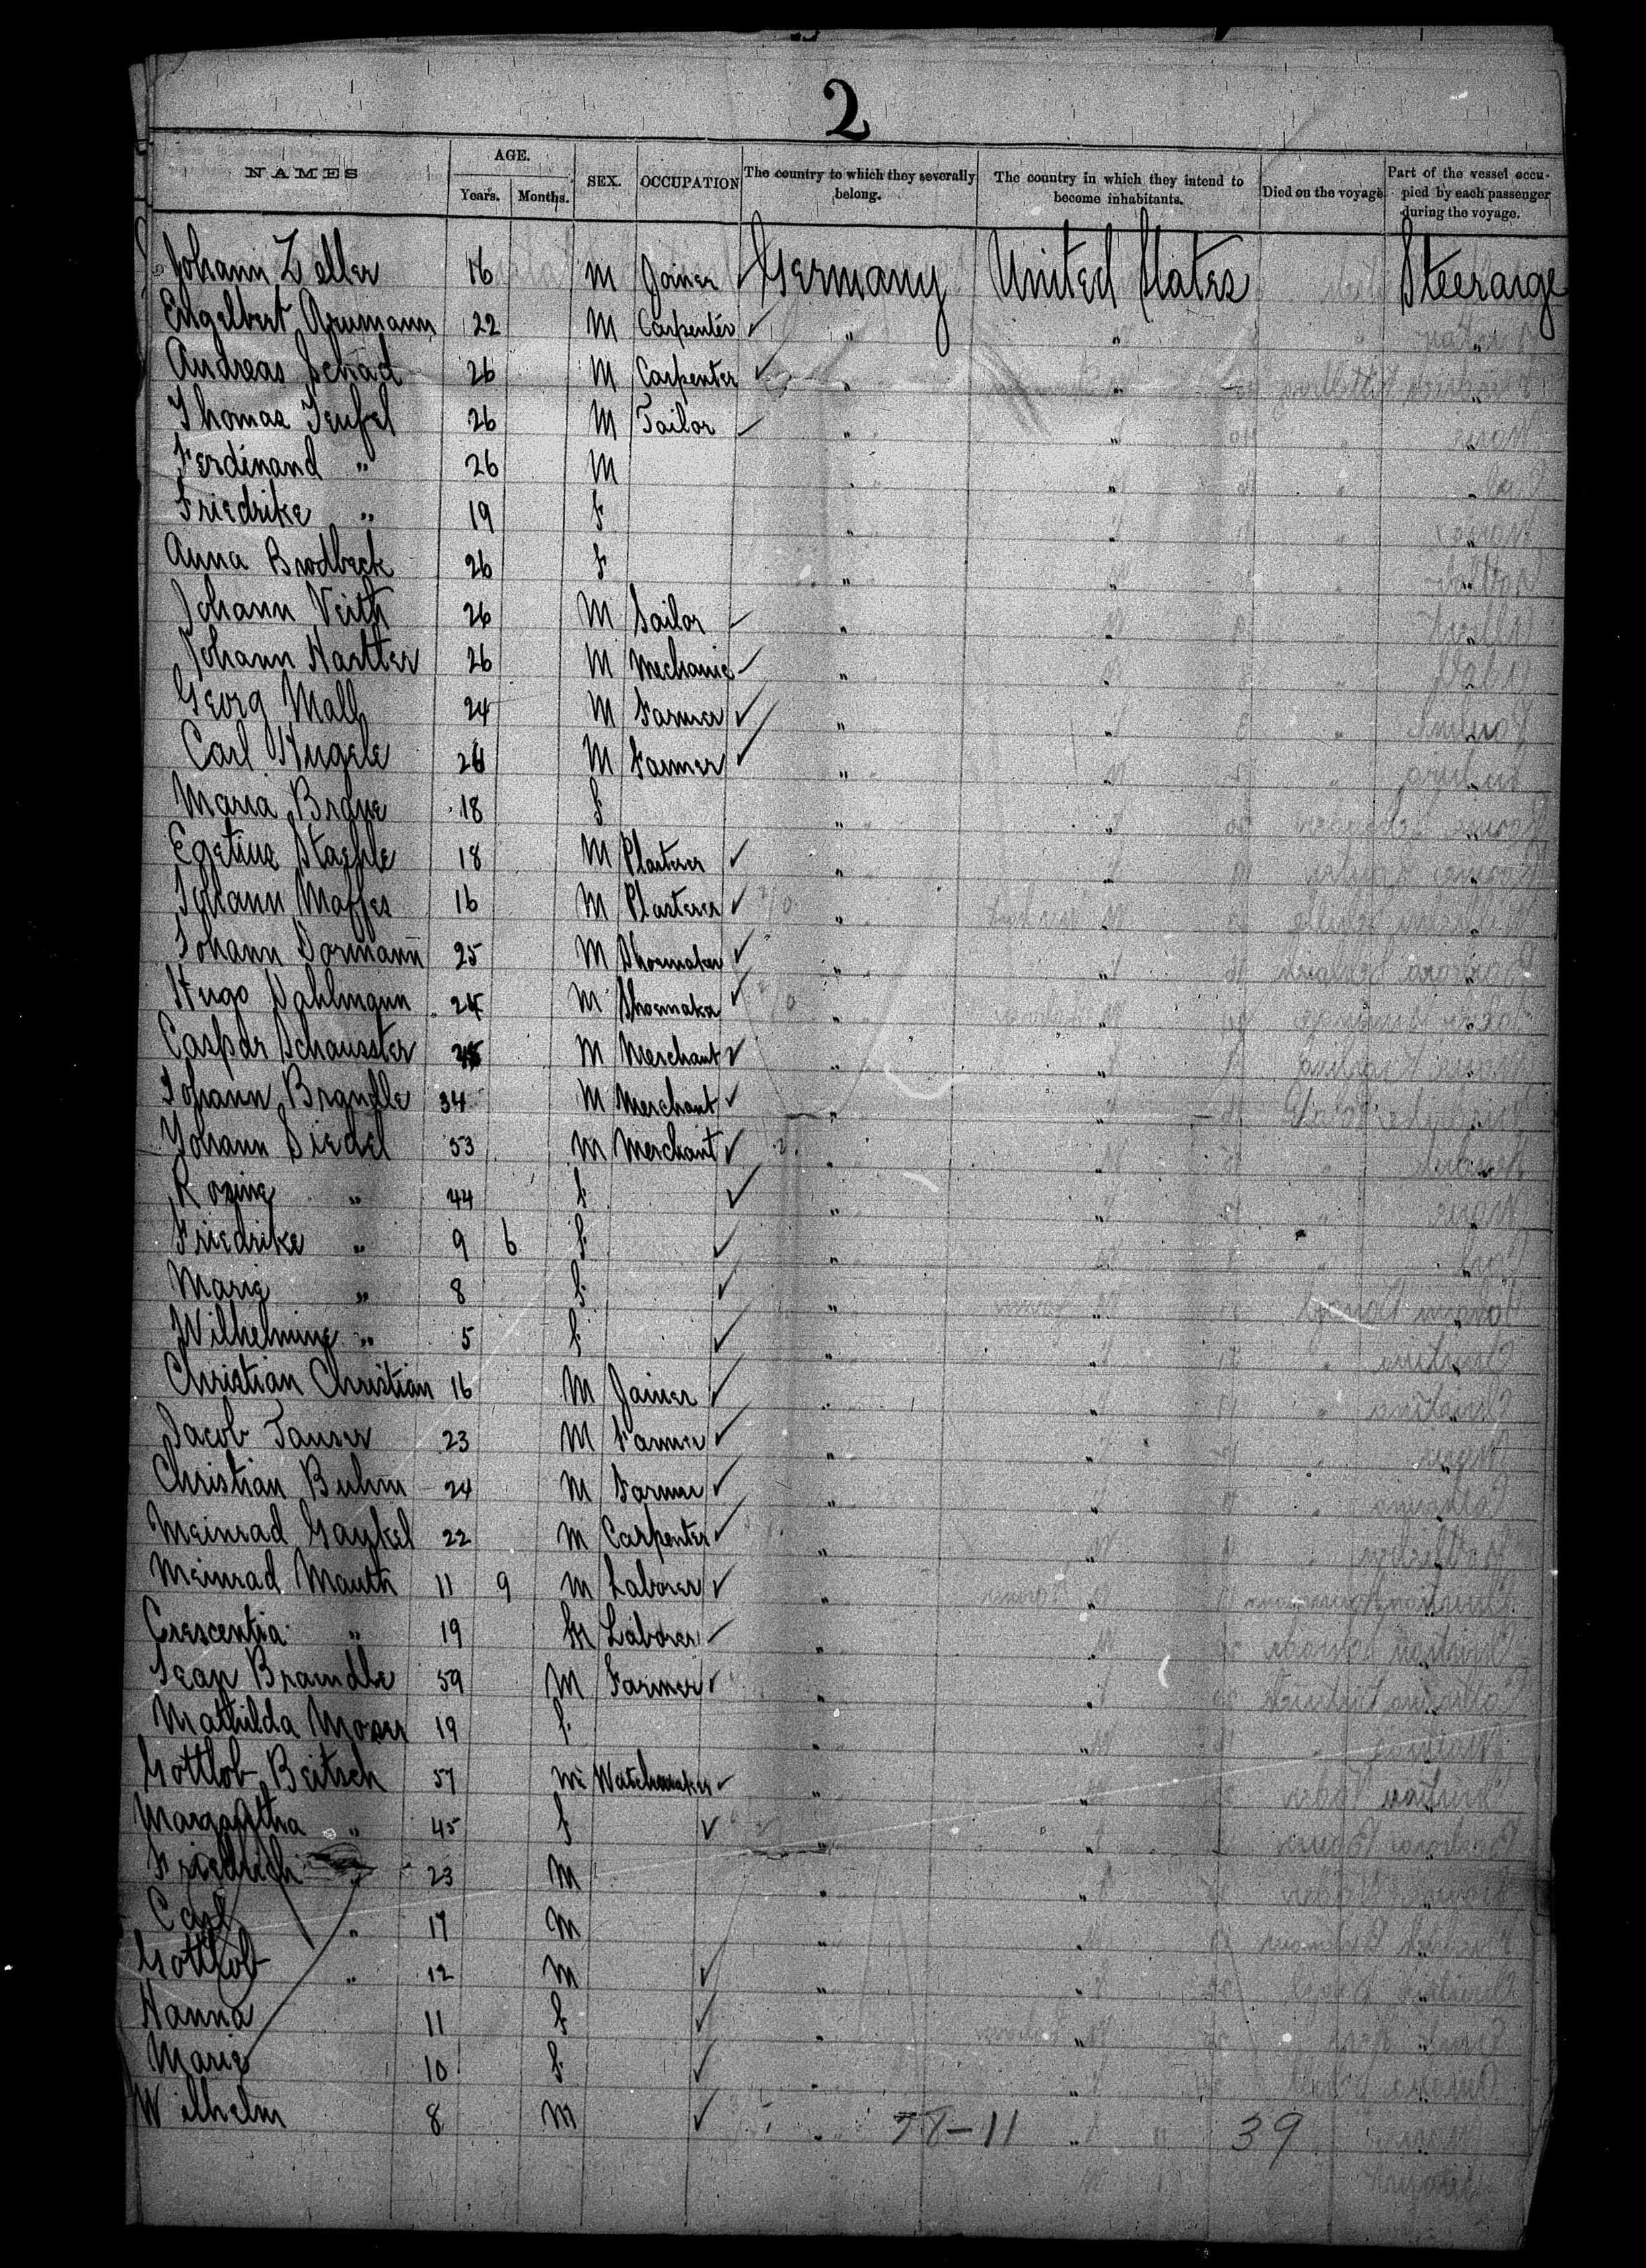 2
NAMES AGE. Years. Months. SEX. OCCUPATION The country to which they severally belong. The country in which they intend to become inhabitants. Died on the voyage. Part of the vessel occupied by each passenger during the voyage.
Johann Zeller 16 M Joiner Germany United States Steerage
Engelbert 22 M Carpenter " " "
Andreas Schad 26 M Carpenter " " "
Thomas Teufel 26 M Tailor " " "
Ferdinand " 26 M " " "
Friedrike " 19 f " " "
Anna Brodbeck 26 f " " "
Johann Veith 26 M Sailor " " "
Johann Hartter 26 M Mechanic " " "
Georg Mall 24 M Farmer " " "
Carl Hugele M Farmer " " "
Maria 18 f " " "
Staehle 18 M Plasterer " " "
Johann Maffes 16 M Plasterer " " "
Johann Dormann 25 M Shoemaker " " "
Hugo Dahlmann 24 M Shoemaker " " "
Caspar Schausster M Merchant " " "
Johann Brandle 34 M Merchant " " "
Johann Siedel 53 M Merchant " " "
Rosine " 44 f " " "
Friedrike " 9 6 f " " "
Marie " 8 f " " "
Wilhelmine " 5 f " " "
Christian Christian 16 M Joiner " " "
Jacob Tauser 23 M Farmer " " "
Christian Buhm 24 M Farmer " " "
Meinrad Gaukel 22 M Carpenter " " "
Meinrad Mauth 11 9 M Laborer " " "
Crescentia " 19 Laborer " " "
Jean Braendle 59 M Farmer " " "
Mathilda Moser 19 f " " "
Gottlob Beitsch 57 M Watchmaker " " "
Margaretha " 45 f " " "
Friedrich " 23 M " " "
Carl " 17 M " " "
Gottlob " 12 M " " "
Hanna 11 f " " "
Marie 10 f " " "
Wilhelm 8 M " " "
39